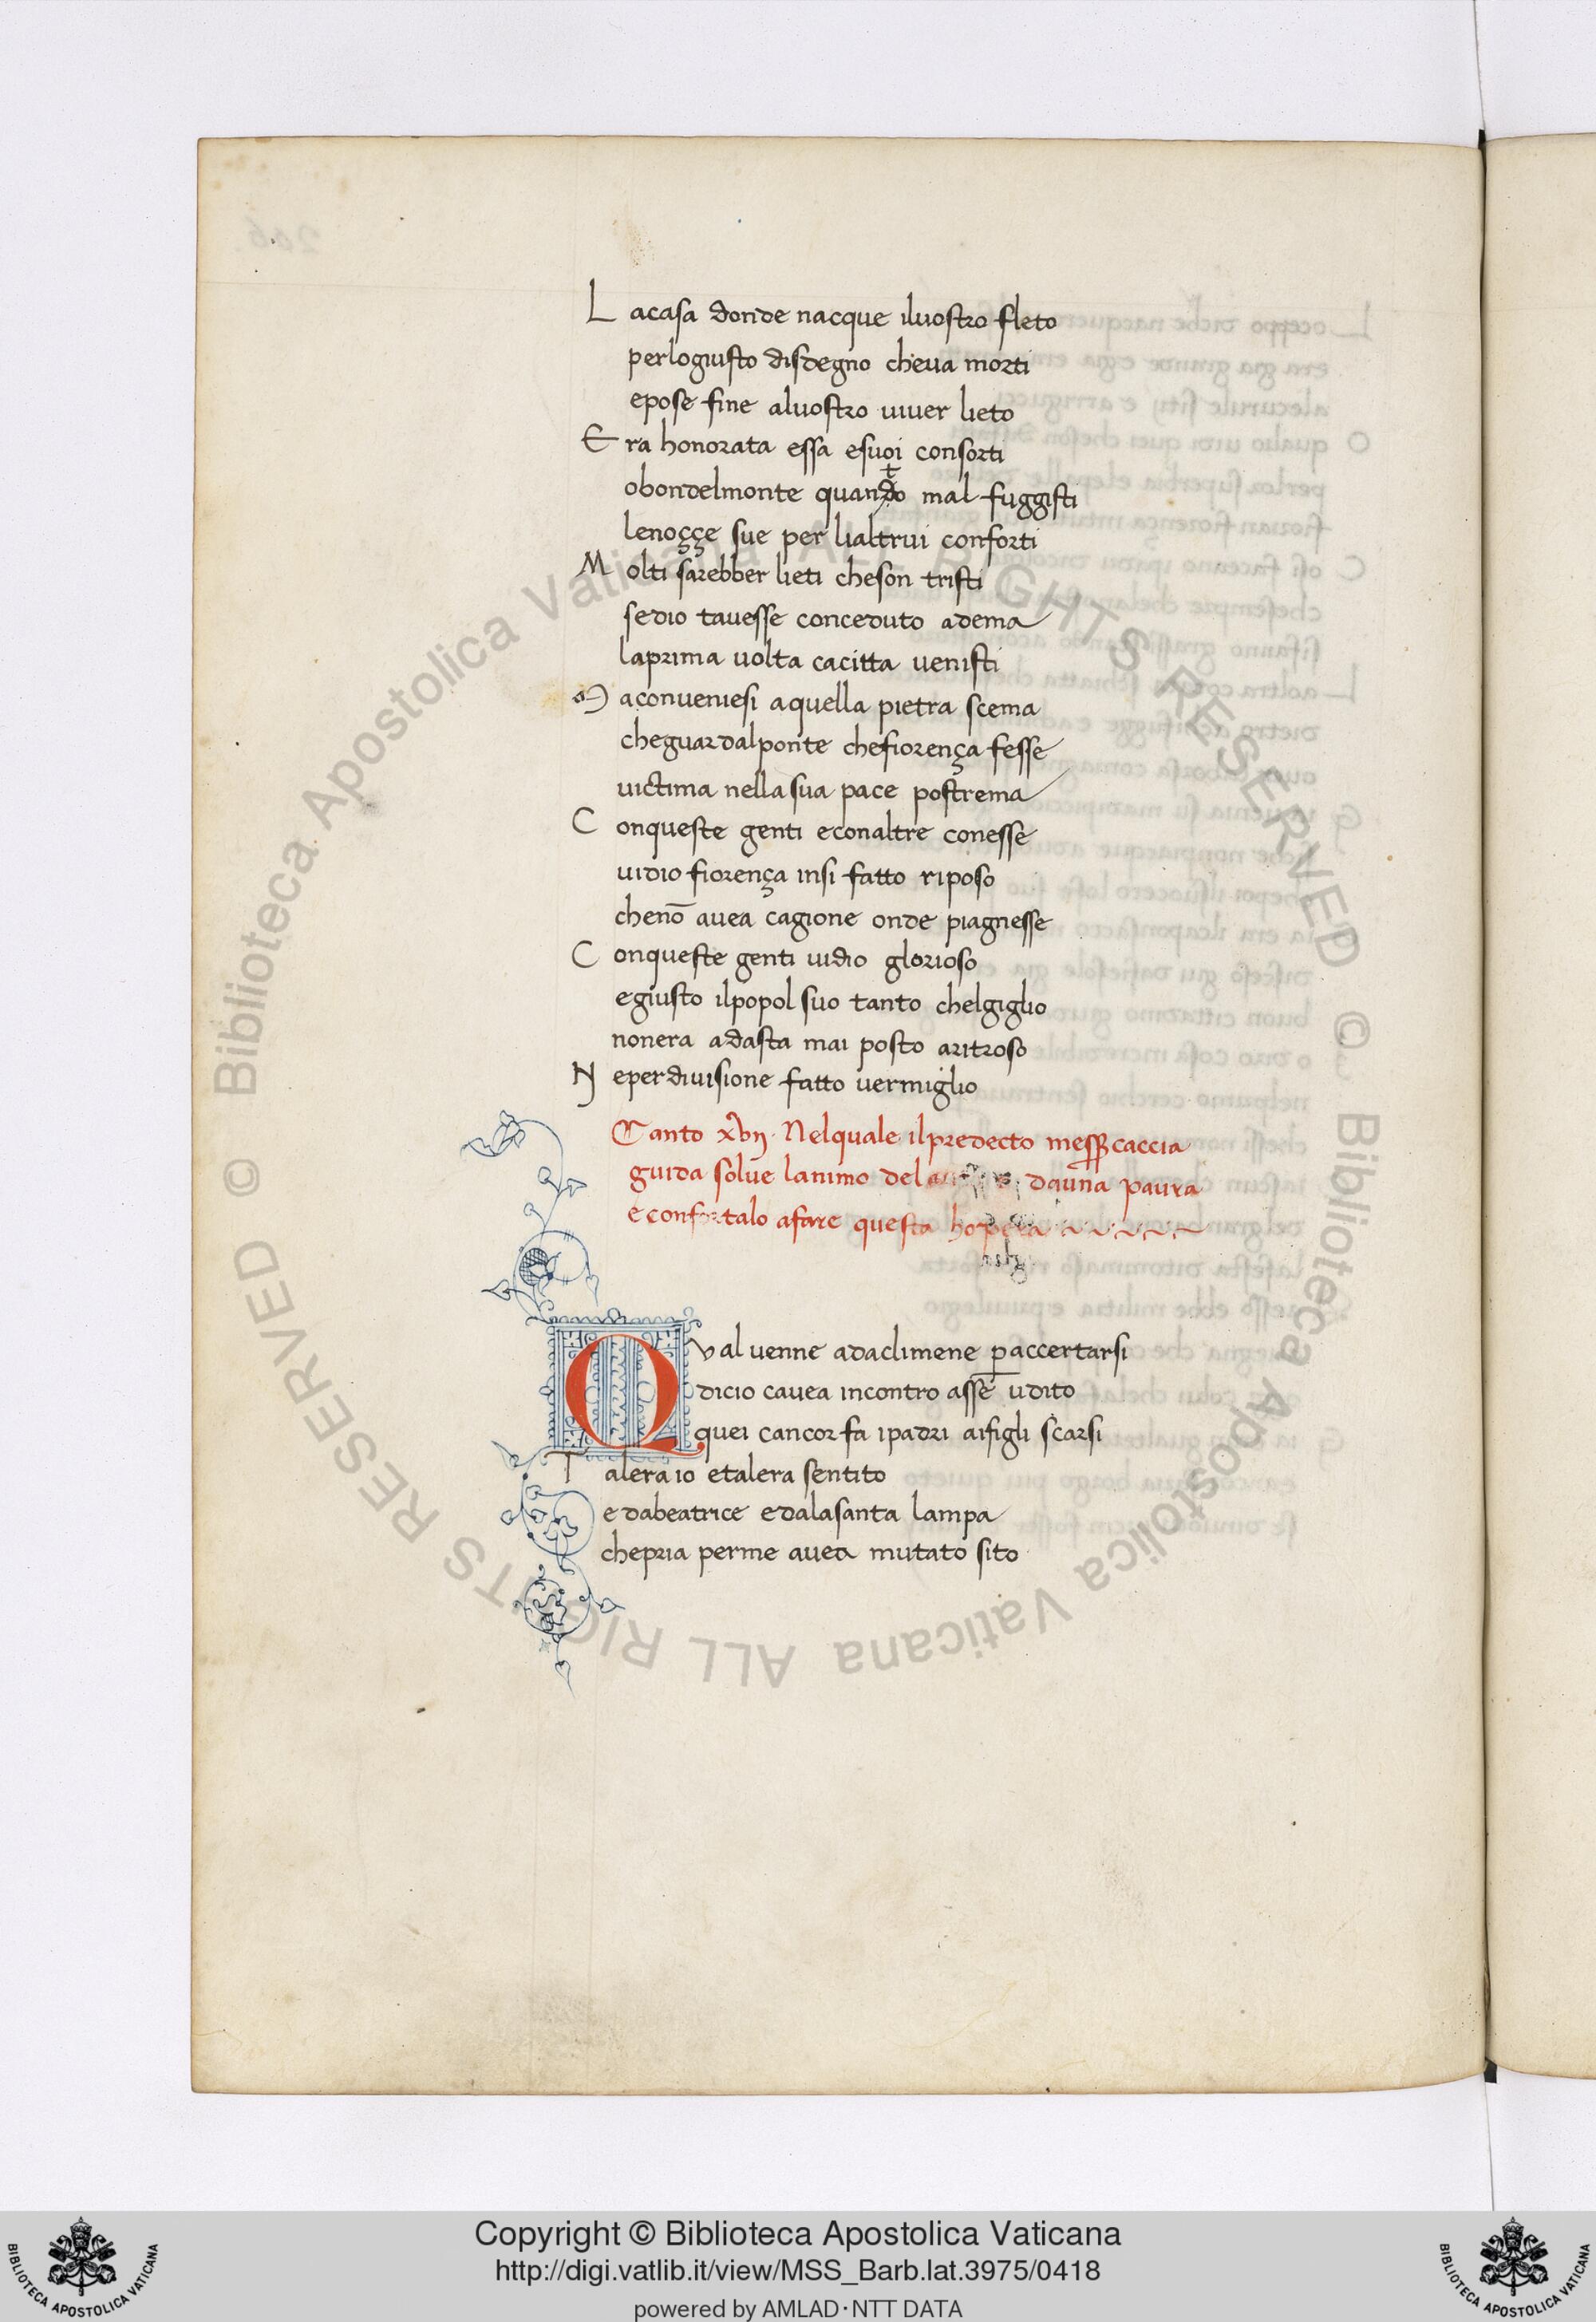 L acasa donde nacque iluostro fleto
perlogiusto disdegno cheua morti
epose fine aluostro uiuer lieto
E ra honorata essa esuoi consorti
obondelmonte quando mal fuggisti
t
lenoççe sue per lialtrui conforti
M olti sarebber lieti cheson tristi
sedio tauesse conceduto adema
laprima uolta cacitta uenisti
M aconueniesi aquella pietra scema
cheguardalponte chefiorença fesse
uictima nella sua pace postrema
C onqueste genti econaltre conesse
uidio fiorença insi fatto riposo
chenō auea cagione onde piagnesse
C onqueste genti uidio glorioso
egiusto ilpopol suo tanto chelgiglio
nonera adasta mai posto aritroso
N eperdiuisione fatto uermiglio
Canto xvij. Nelquale ilpredecto messer caccia
guida solue lanimo del dauna paura
econfortalo afare questa hopera
Q ual uenne adaclimene p̱accertarsi
dicio cauea incontro assē udito
quei cancor fa ipadri aifigli scarsi
T alera io etalera sentito
edabeatrice edalasanta lampa
chepria perme auea mutato sito
© Biblioteca Apostolica Vaticana ALL RIGHTS RESERVED
© Biblioteca Apostolica Vaticana ALL RIGHTS RESERVED
Copyright © Biblioteca Apostolica Vaticana
http://digi.vatlib.it/view/MSS_Barb.lat.3975/0418
powered by AMLAD·NTT DATA
BIBLIOTECA APOSTOLICA VATICANA
BIBLIOTECA APOSTOLICA VATICANA